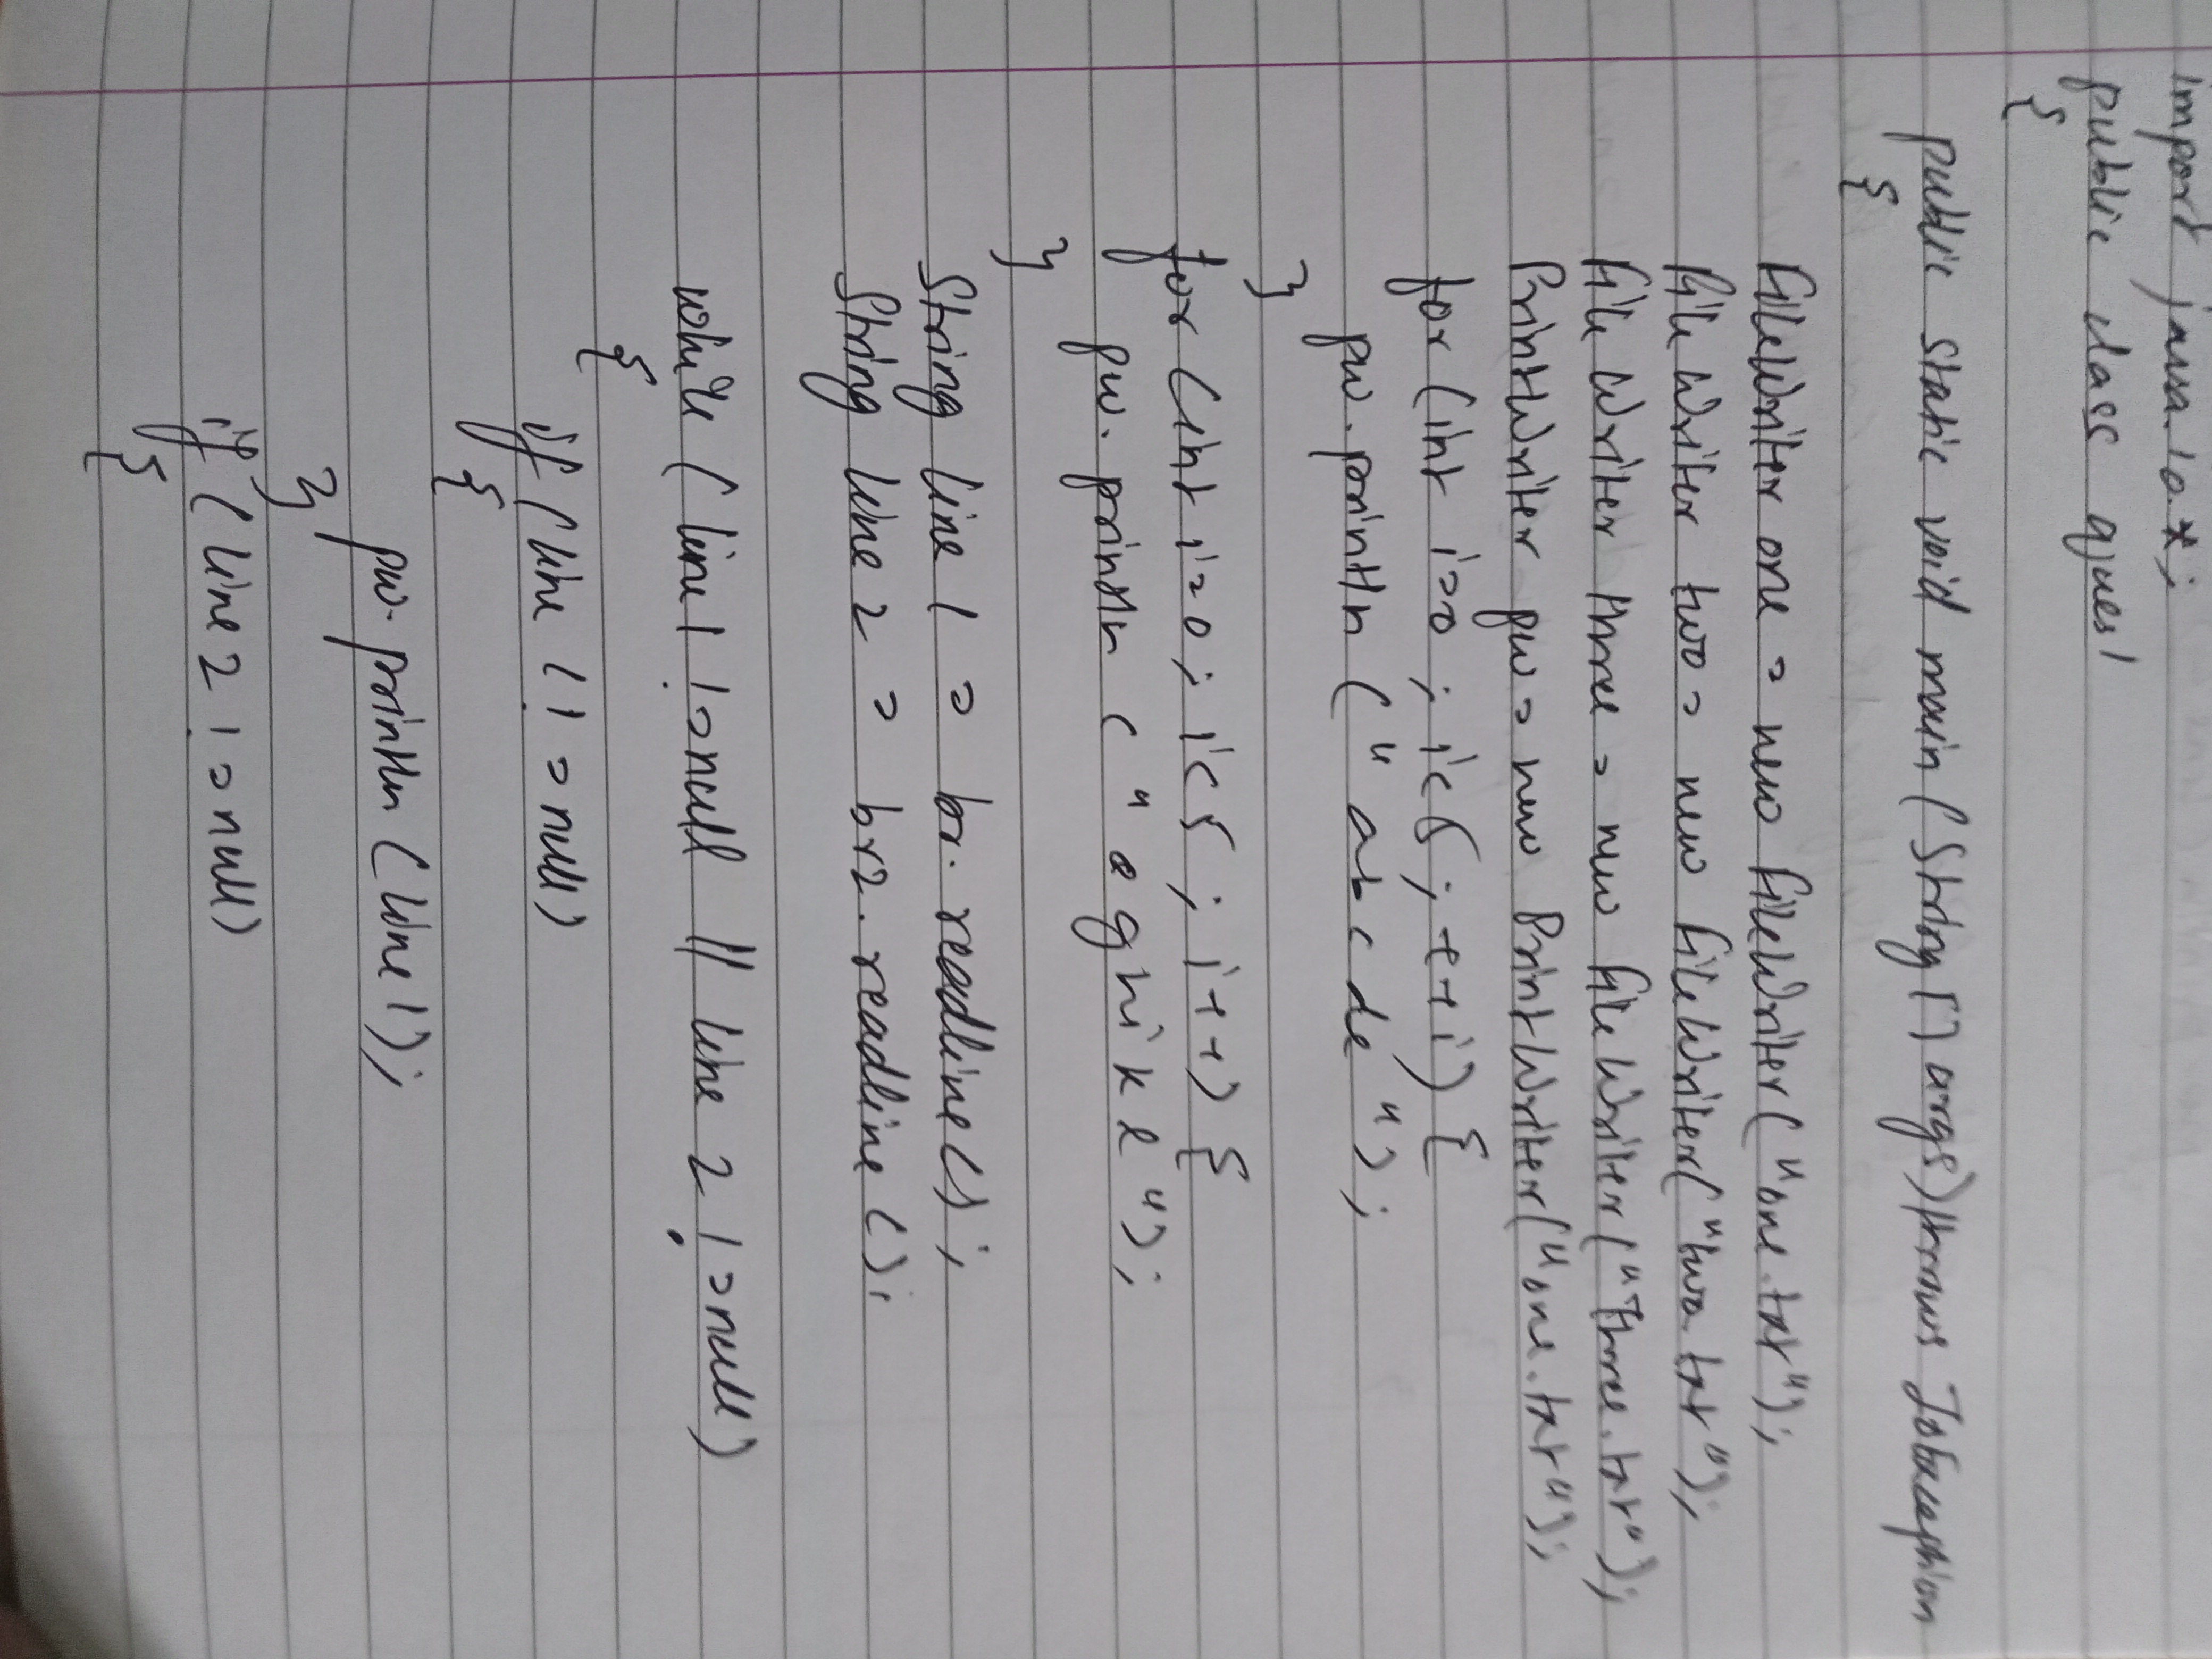 import java.io.*;
public class ques1
{
public static void main(String[] args)throws IOException
{
FileWriter one = new FileWriter("one.txt");
FileWriter two = new FileWriter("two.txt");
FileWriter three = new FileWriter("three.txt");
PrintWriter pw = new PrintWriter("one.txt");
for (int i=0; i<5; ++i) {
pw.println ("abcde");
}
for (int i=0; i<5; i++) {
pw.println ("eghike");
}
String line 1 = br.readline();
String line 2 = br2.readline();
while (line 1 !=null || line 2 !=null)
{
if (line 1 != null)
{
pw.println (line 1);
}
if (line 2 != null)
{